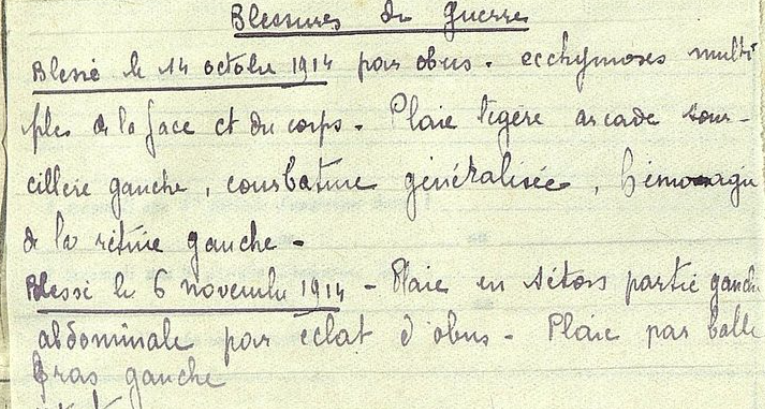 Blessures de guerre
Blessé le 14 octobre 1914 par obus. ecchymoses multi
ples de la face et du corps. Plaie légère arcade sour-
cilière gauche, courbature généralisée, hémorragie
de la rétine gauche -
Blessé le 6 novembre 1914 - Plaie en sétons partie gauche
abdominale par éclat d'obus - Plaie par balle
bras gauche